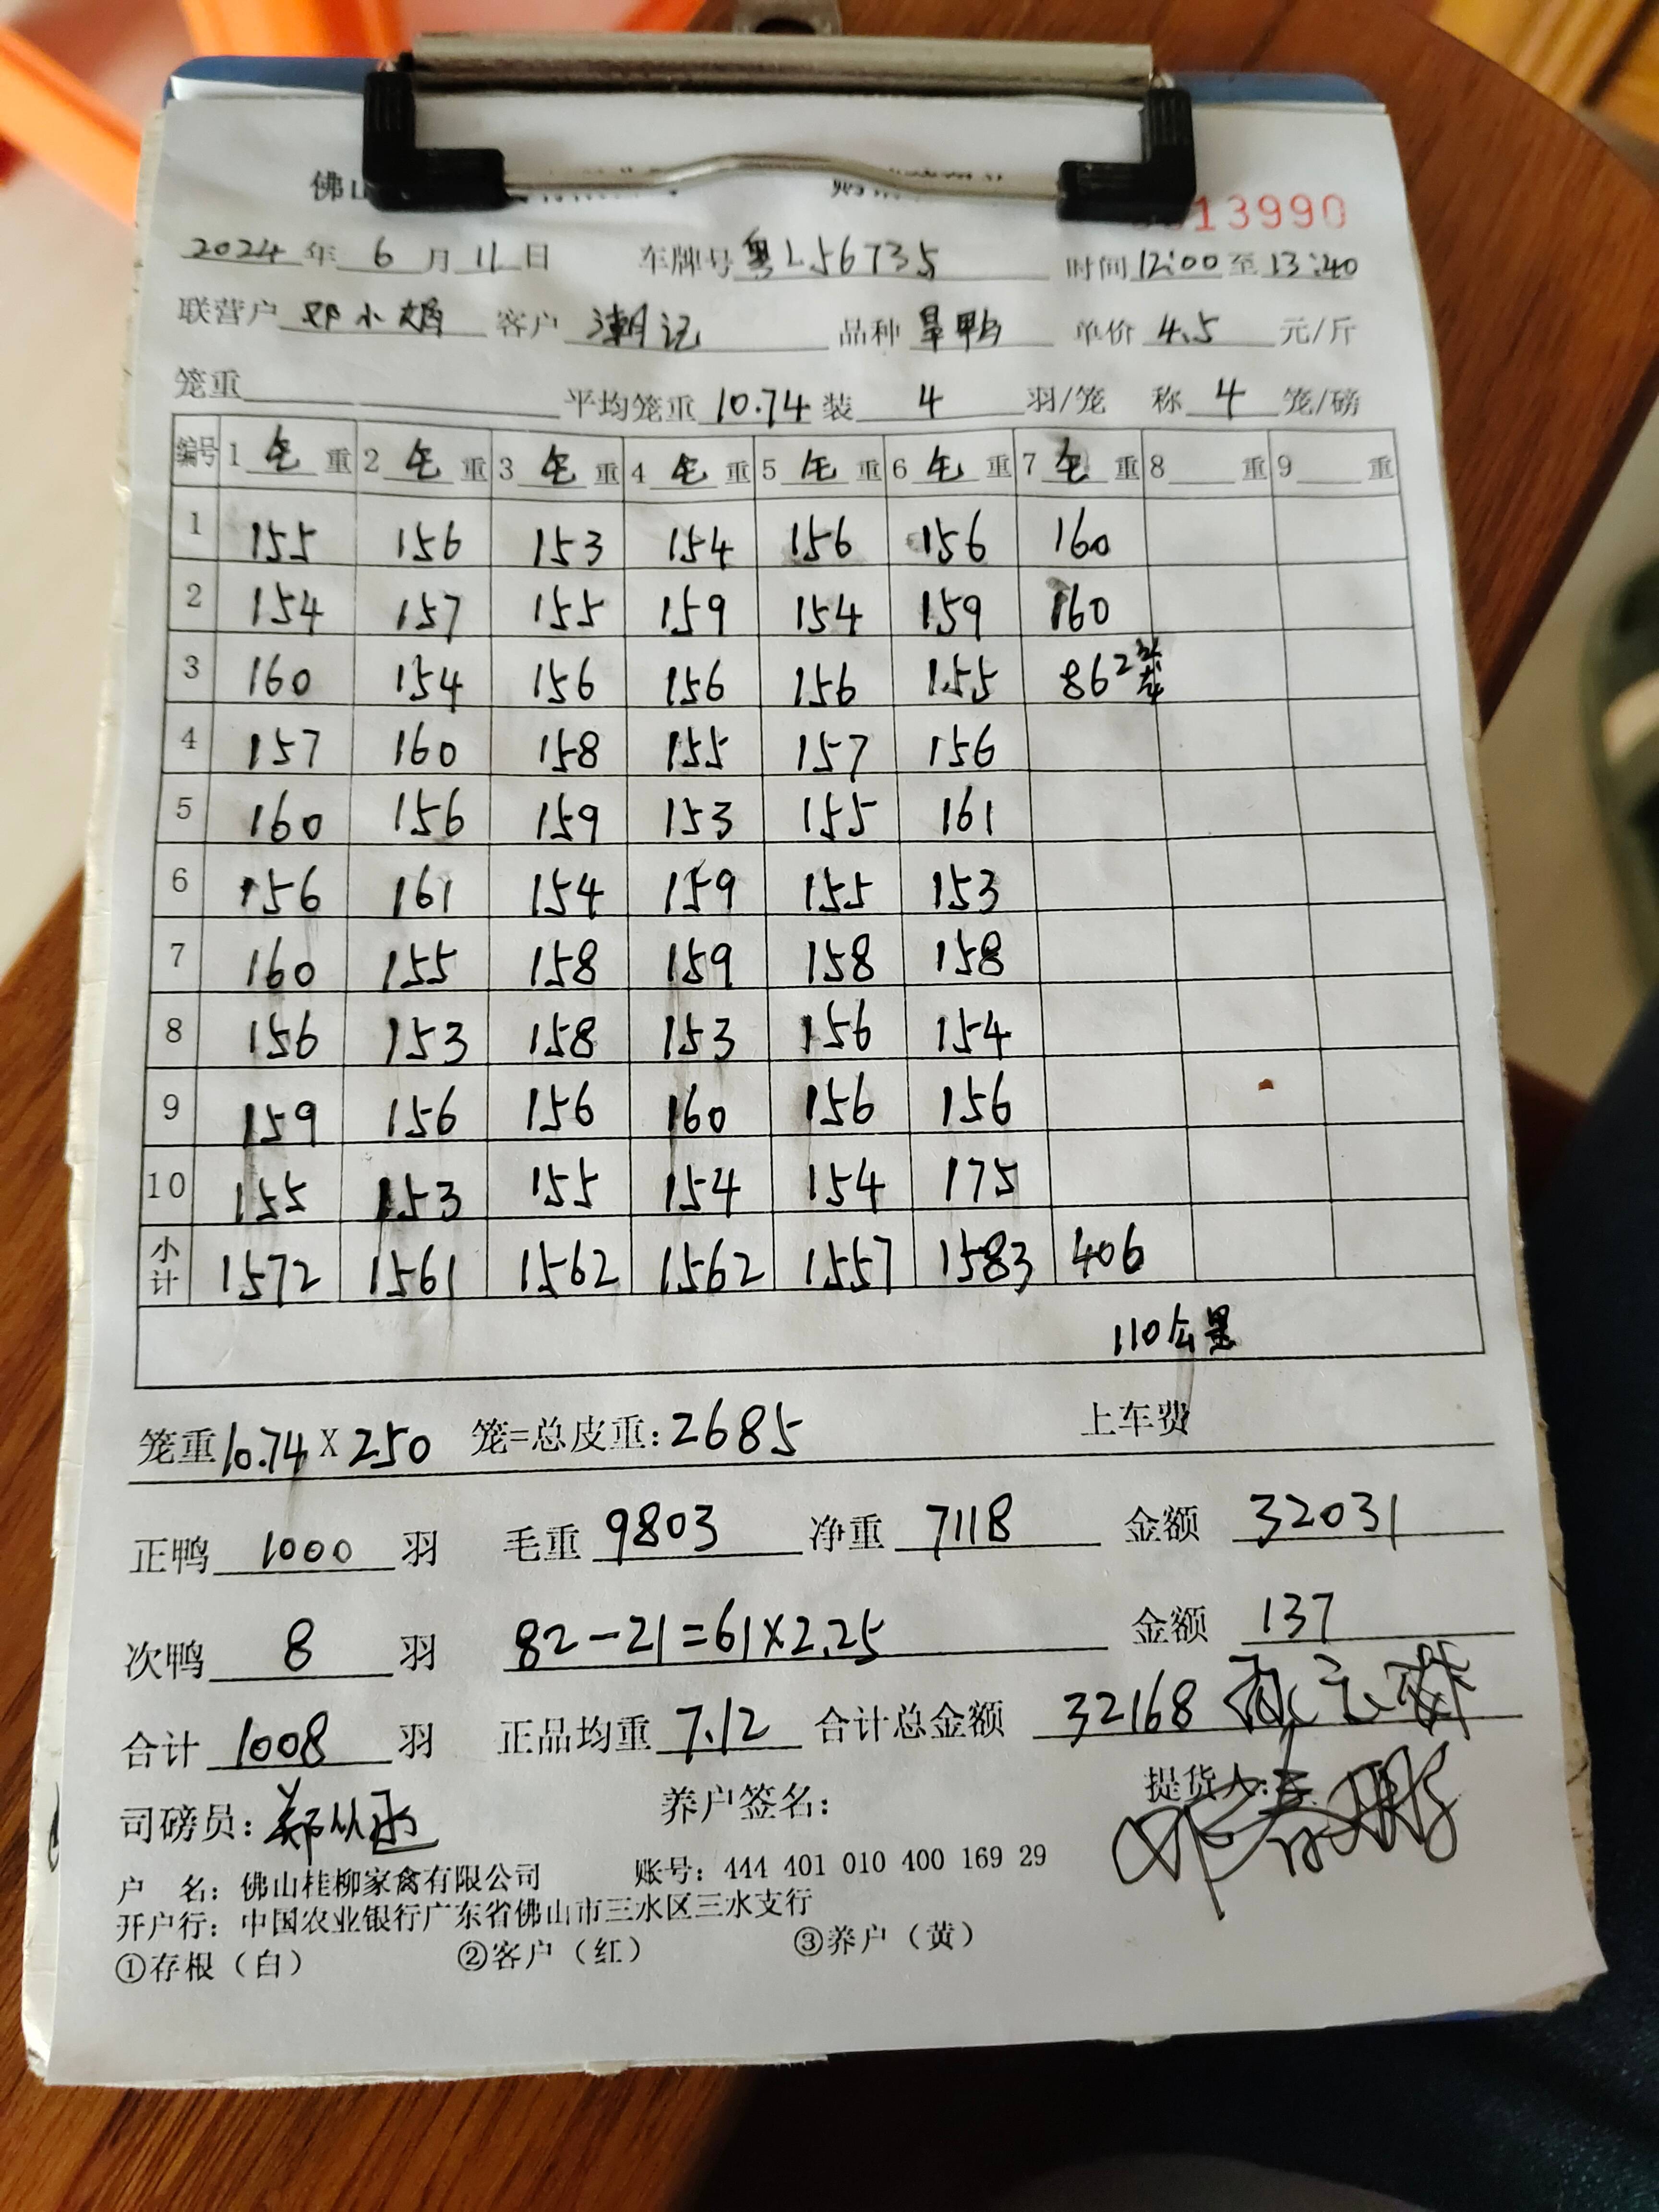 佛山
13990
2024 年 6 月 11 日 车牌号 粤L56735 时间 12:00 至 13:40
联营户 邓小娟 客户 潮记 品种 旱鸭 单价 4.5 元/斤
笼重 平均笼重 10.74 装 4 羽/笼 称 4 笼/磅
编号 1 毛 重 2 毛 重 3 毛 重 4 毛 重 5 毛 重 6 毛 重 7 毛 重 8 重 9 重
1 155 156 153 154 156 156 160
2 154 157 155 159 154 159 160
3 160 154 156 156 156 155 86 2笼
4 157 160 158 155 157 156
5 160 156 159 153 155 161
6 156 161 154 159 155 153
7 160 155 158 159 158 158
8 156 153 158 153 156 154
9 159 156 156 160 156 156
10 155 153 155 154 154 175
小计 1572 1561 1562 1562 1557 1583 406
110公里
笼重 10.74 X 250 笼=总皮重: 2685 上车费
正鸭 1000 羽 毛重 9803 净重 7118 金额 32031
次鸭 8 羽 82-21=61×2.25 金额 137
合计 1008 羽 正品均重 7.12 合计总金额 32168
司磅员: 养户签名: 提货人:
户 名: 佛山桂柳家禽有限公司 账号: 444 401 010 400 169 29
开户行: 中国农业银行广东省佛山市三水区三水支行
①存根（白） ②客户（红） ③养户（黄）